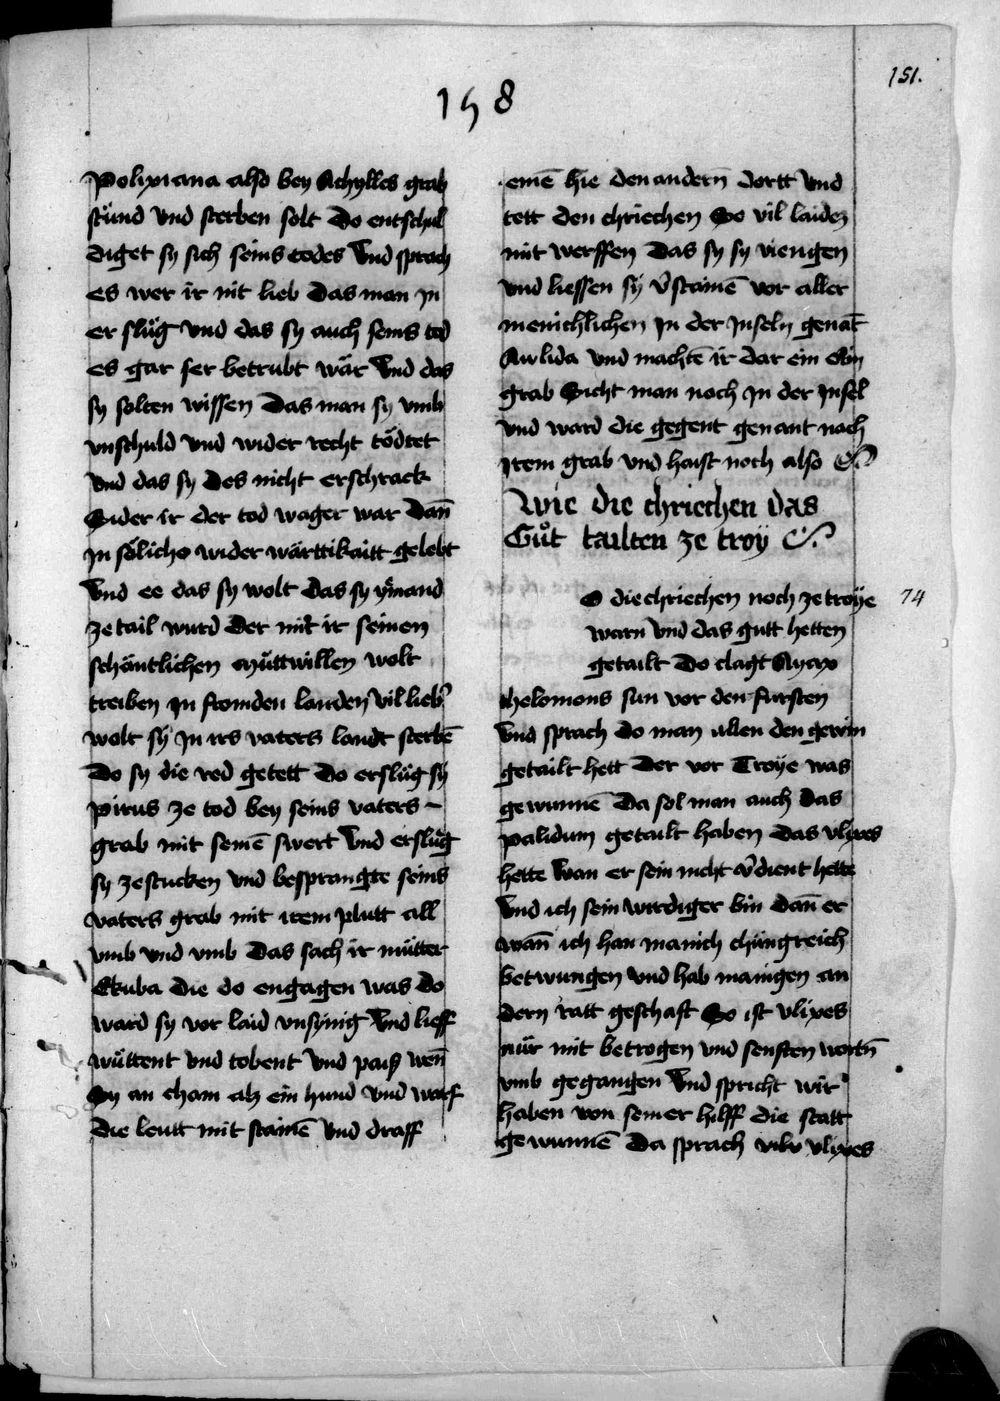 151.
158
Polixiana also bey Achylles grab
stůnd vnd sterben solt Do entschul
diget sy sich seins todes Vnd sprach
es wer ir nit lieb Das man jn
er slůg vnd das sy auch seins tod
es gar ser betrubt wär Vnd das
sy solten wissen Das man sy vmb
vnschuld vnd wider recht tödtet
Vnd das sy Des nicht erschrack
Sider ir der tod wäger war Dañ
jn sölicher wider wärttikaitt gelebt
Vnd ee das sy wolt Das sy ÿmand
ze tail wurd Der mit ir seinen
schäntlichen můttwillen wolt
treiben jn fromden landen Vil lieb̕
wolt sy jn irs vaters landt sterbē
Do sy die red getett Do erslůg sy
pirus ze tod bey seins vaters
grab mit seinē swert Vnd erslůg
sy ze stucken vnd besprangte seins
vaters grab mit irem plutt all
vmb vnd vmb Das sach ir můtter
Ekuba die do engagen was Do
ward sy vor laid vnsynig Vnd lieff
wůttent vnd tobent Vnd paiß wen̄
Sy an cham alz ein hund vnd warf
Die leutt mit stainē Vnd draff
einē hie den andern̄ dortt Vnd
tett den chriechen So vil laidez
mit werffen Das sy sy viengen
Vnd liessen sy v̕stainē vor aller
menichlichen jn der jnseln genāt
Awlida vnd machtē ir dar ein Ain
grab Sicht man noch jn der jnsel
Vnd ward die gegent genant nach
jrem grab vnd haist noch also
Wie die chriechen das
Gůt tailten ze troy
O die chriechen noch ze troÿe
74
warn vnd das gutt hetten
getailt Do clagt Ayax
thelomons sun vor den fursten
Vnd sprach do man allen den gewin
getailt hett Der vor Troÿe was
gewunnē Da sol man auch Das
palidum getailt haben Das vlixes
hette Wan er sein nicht v̕dient hette
Vnd ich sein wirdiger bin Dañ er
wañ ich han manich chüngreich
betwungen vnd hab manigen an
dern ratt geschaft So ist vlixes
nůr mit betrogen vnd senften wortn̄
vmb gegangen Vnd spricht wir
haben von seiner hilff die statt
gewunnē Da sprach vlixes